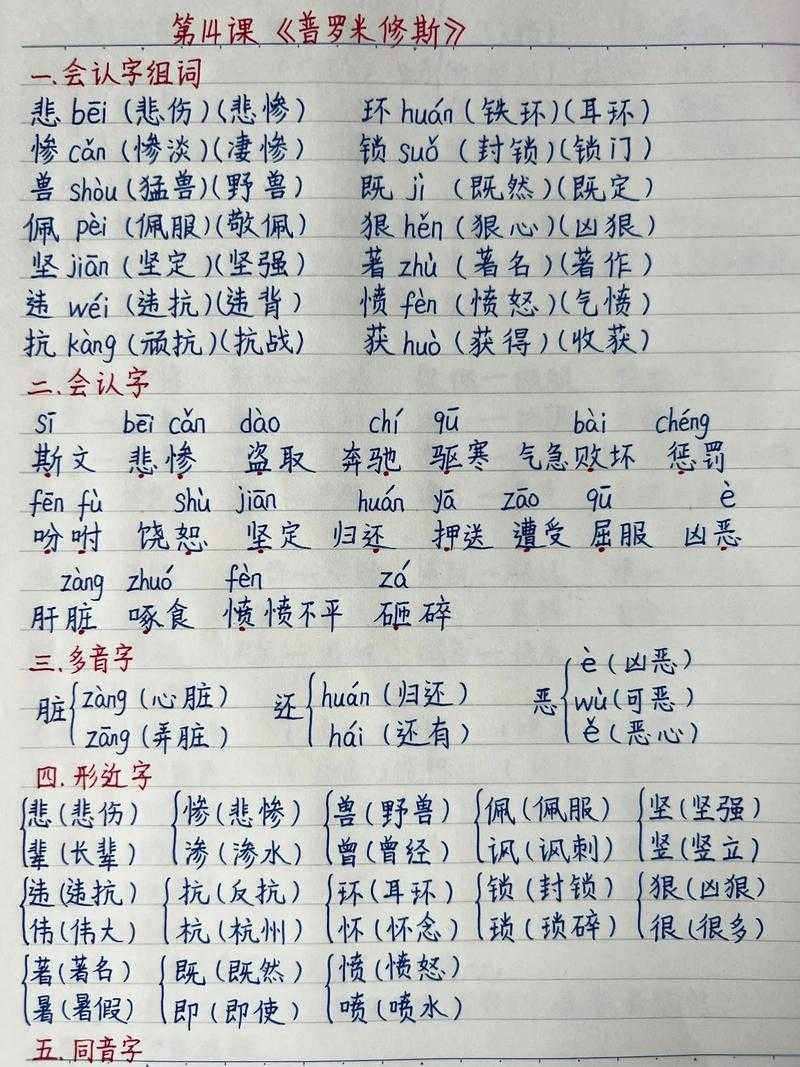 第14课《普罗米修斯》
一.会认字组词
悲 bēi (悲伤)(悲惨) 环 huán (铁环)(耳环)
惨 cǎn (惨淡)(凄惨) 锁 suǒ (封锁)(锁门)
兽 shòu (猛兽)(野兽) 既 jì (既然)(既定)
佩 pèi (佩服)(敬佩) 狠 hěn (狠心)(凶狠)
坚 jiān (坚定)(坚强) 著 zhù (著名)(著作)
违 wéi (违抗)(违背) 愤 fèn (愤怒)(气愤)
抗 kàng (顽抗)(抗战) 获 huò (获得)(收获)
二.会认字
sī bēi cǎn dào chí qū bài chéng
斯文 悲惨 盗取 奔驰 驱寒 气急败坏 惩罚
fēn fù shù jiān huán yā zāo qū è
吩咐 饶恕 坚定 归还 押送 遭受 屈服 凶恶
zàng zhuó fèn zá
肝脏 啄食 愤愤不平 砸碎
三.多音字
脏 zàng (心脏) zāng (弄脏) 还 huán (归还) hái (还有) 恶 è (凶恶) wù (可恶) ě (恶心)
四.形近字
悲(悲伤) 惨(悲惨) 兽(野兽) 佩(佩服) 坚(坚强)
辈(长辈) 渗(渗水) 曾(曾经) 讽(讽刺) 竖(竖立)
违(违抗) 抗(反抗) 环(耳环) 锁(封锁) 狠(凶狠)
伟(伟大) 杭(杭州) 怀(怀念) 琐(琐碎) 很(很多)
著(著名) 既(既然) 愤(愤怒)
暑(暑假) 即(即使) 喷(喷水)
五.同音字